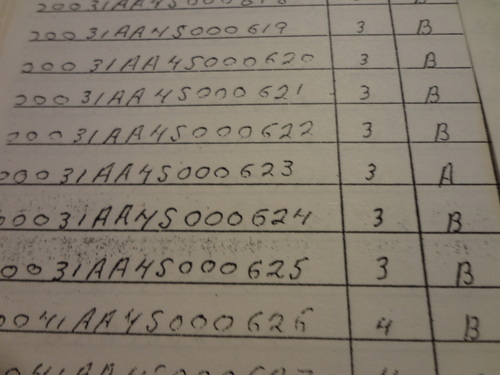 20031AA4S000619 3 B
20031AA4S000620 3 B
20031AA4S000621 3 B
20031AA4S000622 3 B
0031AA4S000623 3 A
00031AA4S000624 3 B
0031AA4S000625 3 B
0041AA4S000626 4 B